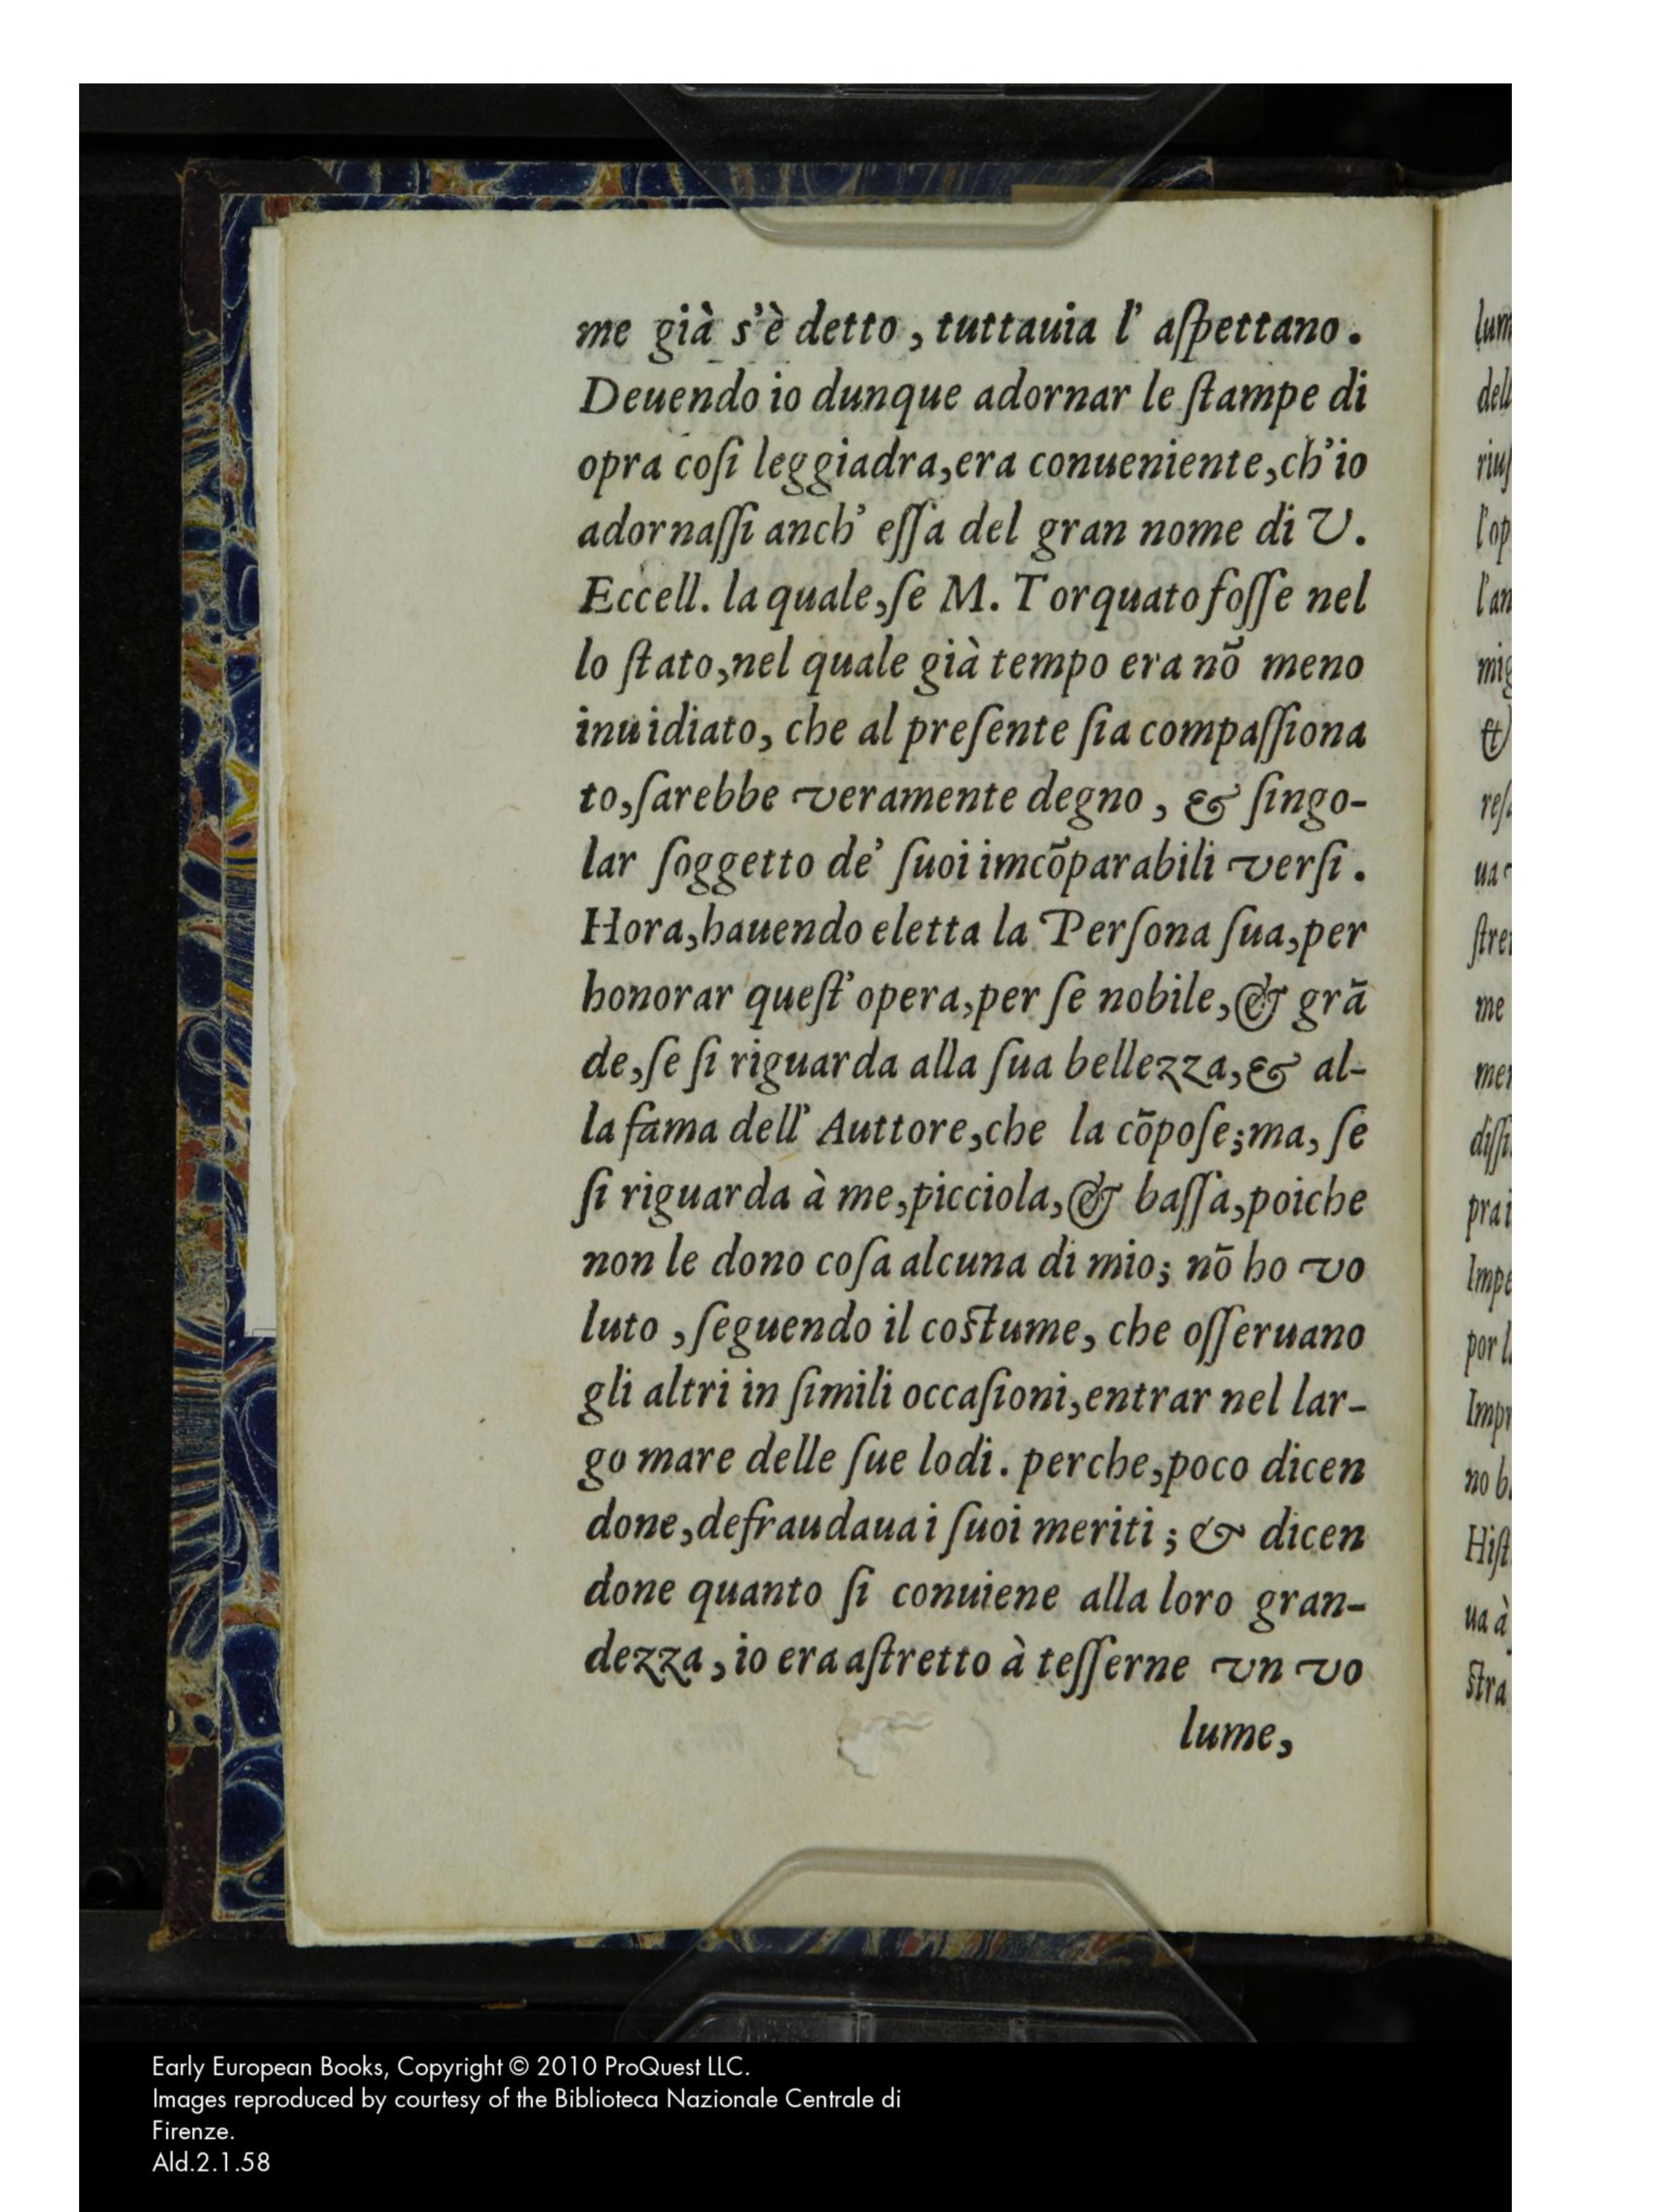 me già s'è detto, tuttauia l' aſpettano.
Deuendo io dunque adornar le ſtampe di
opra coſi leggiadra, era conueniente, ch'io
adornaſſi anch' eſſa del gran nome di V.
Eccell. la quale, ſe M. Torquato foſſe nel
lo ſtato, nel quale già tempo era nō meno
inuidiato, che al preſente ſia compaſſiona
to, ſarebbe veramente degno, & ſingo-
lar ſoggetto de' ſuoi imcōparabili verſi.
Hora, hauendo eletta la Perſona ſua, per
honorar queſt' opera, per ſe nobile, & grā
de, ſe ſi riguarda alla ſua bellezza, & al-
la fama dell' Auttore, che la cōpoſe; ma, ſe
ſi riguarda à me, picciola, & baſſa, poiche
non le dono coſa alcuna di mio; nō ho vo
luto, ſeguendo il coſtume, che oſſeruano
gli altri in ſimili occaſioni, entrar nel lar-
go mare delle ſue lodi. perche, poco dicen
done, defraudaua i ſuoi meriti; & dicen
done quanto ſi conuiene alla loro gran-
dezza, io era aſtretto à teſſerne vn vo
lume,
lum
dell
riuſ
l'op
l'an
mig
&
reſ
ua
ſtre
me
mer
diſſi
pra i
Impe
por l
Impr
no b
Hiſt
ua à
ſtra
Early European Books, Copyright © 2010 ProQuest LLC.
Images reproduced by courtesy of the Biblioteca Nazionale Centrale di
Firenze.
Ald.2.1.58